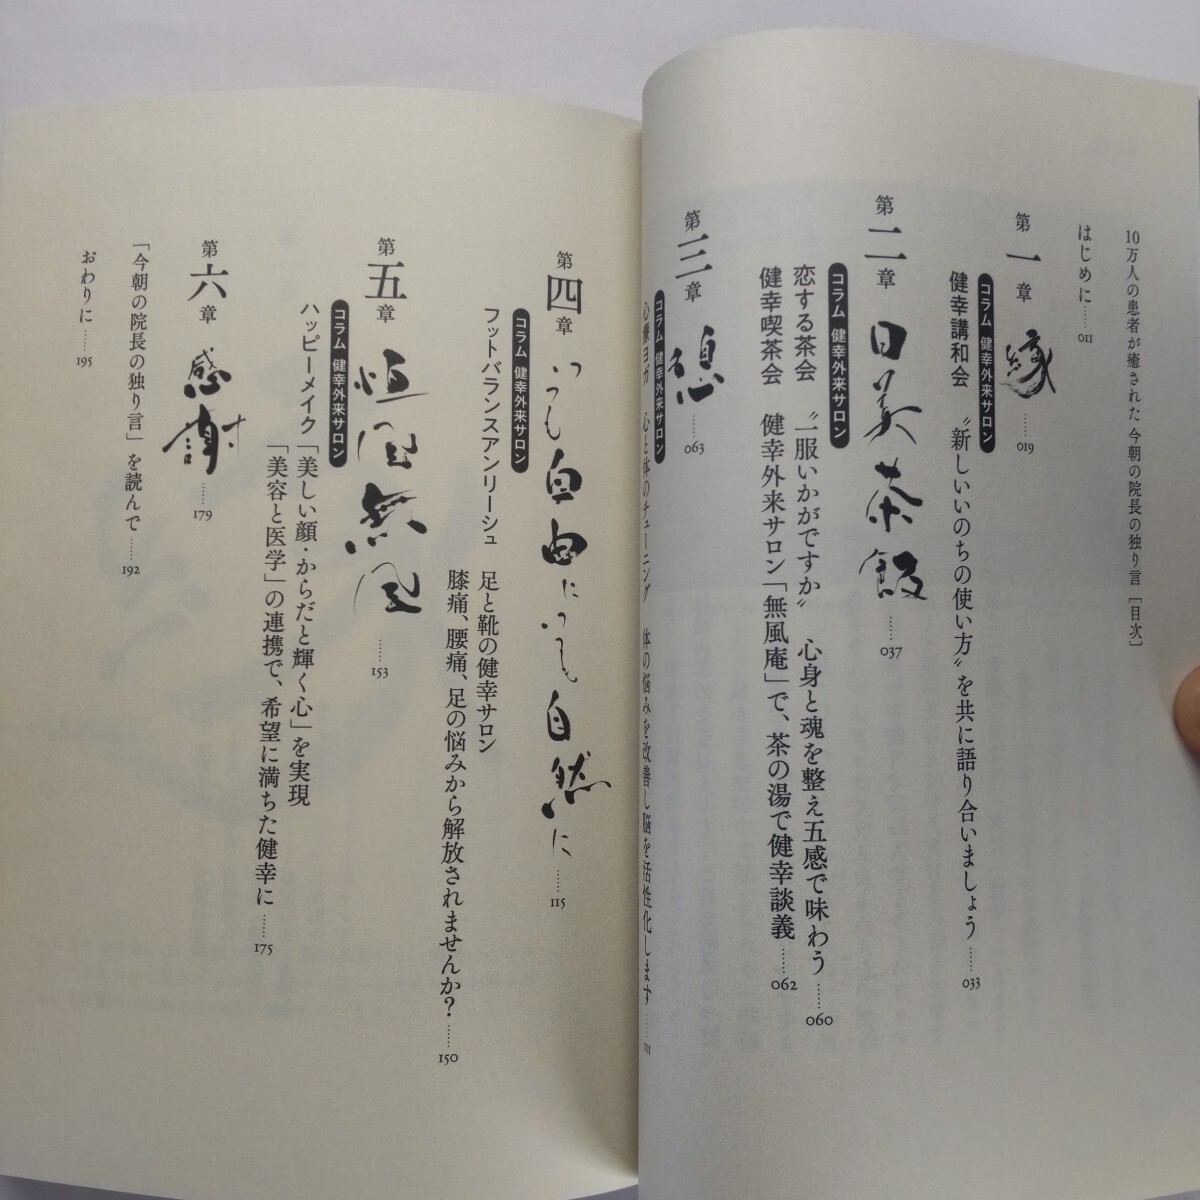 10万人の患者が癒された 今朝の院長の独り言 [目次]
はじめに……011
第一章 縁……019
コラム 健幸外来サロン
健幸講和会 〝新しいいのちの使い方〟を共に語り合いましょう……033
第二章 日美茶飯……037
コラム 健幸外来サロン
恋する茶会 〝一服いかがですか〟 心身と魂を整え五感で味わう……060
健幸喫茶会 健幸外来サロン「無風庵」で、茶の湯で健幸談義……062
第三章 憩……063
コラム 健幸外来サロン
ヨガ 心と体のチューニング 体の悩みを改善し脳を活性化します……111
第四章 いつも自由にいつも自然に……115
コラム 健幸外来サロン
フットバランスアンリーシュ 足と靴の健幸サロン
膝痛、腰痛、足の悩みから解放されませんか?……150
第五章 恒風無風……153
コラム 健幸外来サロン
ハッピーメイク 「美しい顔・からだと輝く心」を実現
「美容と医学」の連携で、希望に満ちた健幸に……175
第六章 感謝……179
「今朝の院長の独り言」を読んで……192
おわりに……195